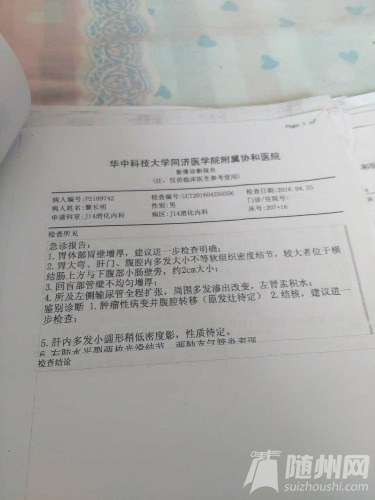 Page 1 of
华中科技大学同济医学院附属协和医院
影像诊断报告
(注：仅供临床医生参考使用)
病人编号:P2189742 检查编号:UCT201604250206 检查日期:2016.04.25
病人姓名:黎长明 性别:男 门诊/住院号:
申请科室:J14消化内科 病区:J14消化内科 床号:207+16
检查所见
急诊报告:
1.胃体部胃壁增厚，建议进一步检查明确;
2.胃大弯、肝门、腹腔内多发大小不等软组织密度结节，较大者位于横
结肠上方与下腹部小肠壁旁，约2cm大小;
3.回盲部管壁不均匀增厚;
4.所及左侧输尿管全程扩张，周围多发渗出改变，左肾盂积水;
鉴别诊断 1.肿瘤性病变并腹腔转移（原发灶待定） 2.结核，建议进一
步检查;
5.肝内多发小圆形稍低密度影，性质待定。
检查结论
随州网
suizhoushi.com